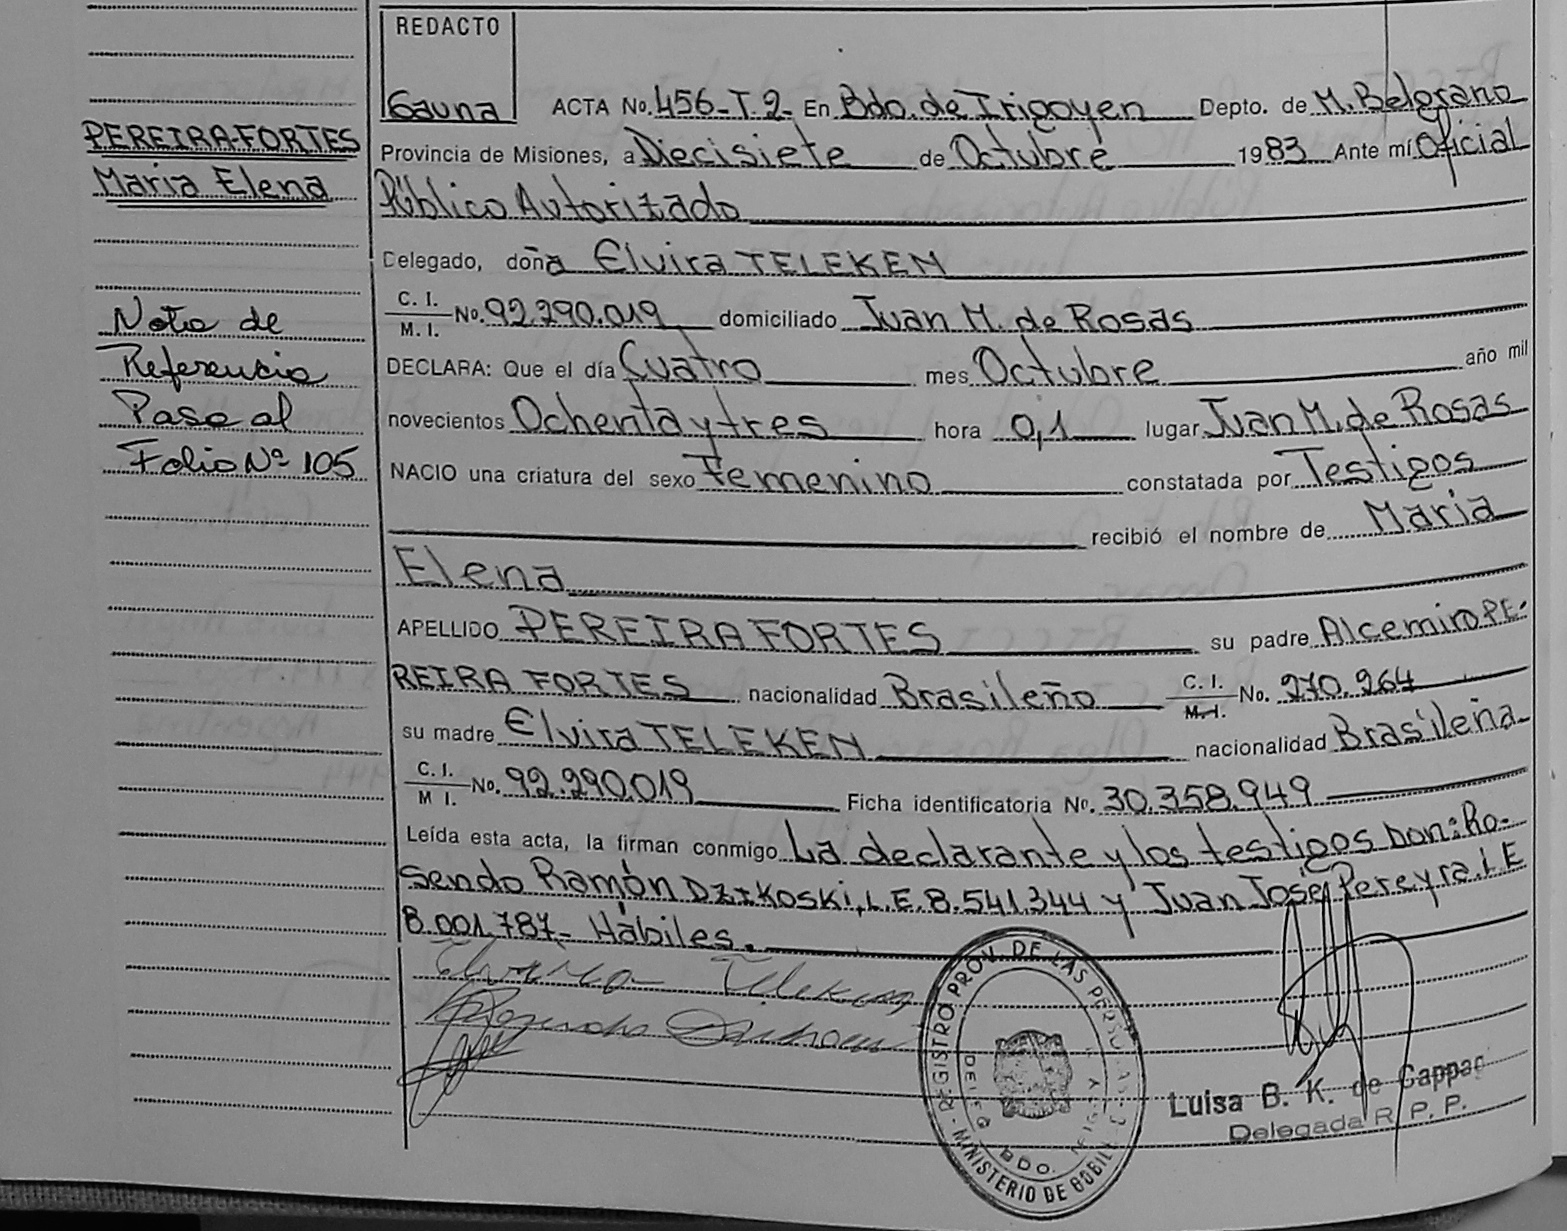 REDACTO
Gauna ACTA No. 456-T.2- En Bdo. de Irigoyen Depto. de M. Belgrano
PEREIRA-FORTES
Maria Elena
Provincia de Misiones, a Diecisiete de Octubre 1983 Ante mí Oficial
Público Autorizado
Delegado, doña Elvira TELEKEN
C. I.
M. I. No. 92.290.019 domiciliado Juan M. de Rosas
Nota de
Referencia
Pase al
Folio Nº 105
DECLARA: Que el día Cuatro mes Octubre año mil
novecientos Ochenta y tres hora 0,1 lugar Juan M. de Rosas
NACIO una criatura del sexo Femenino constatada por Testigos
recibió el nombre de Maria
Elena
APELLIDO PEREIRA FORTES su padre Alcemiro PE-
REIRA FORTES nacionalidad Brasileño C. I. M. I. No. 270.264
su madre Elvira TELEKEN nacionalidad Brasileña
C. I.
M I. No. 92.290.019 Ficha identificatoria No. 30.358.949
Leída esta acta, la firman conmigo La declarante y los testigos Don: Ro-
sendo Ramón DZIKOSKI, L.E. 8.541.344 y Juan José Pereyra. L.E
8.001.787- Hábiles.
Elvira Teleken
REGISTRO PROV. DE LAS PERSONAS
MINISTERIO DE GOB
DELEG BDO.
Luisa B. K. de Gappar
Delegada R. P. P.